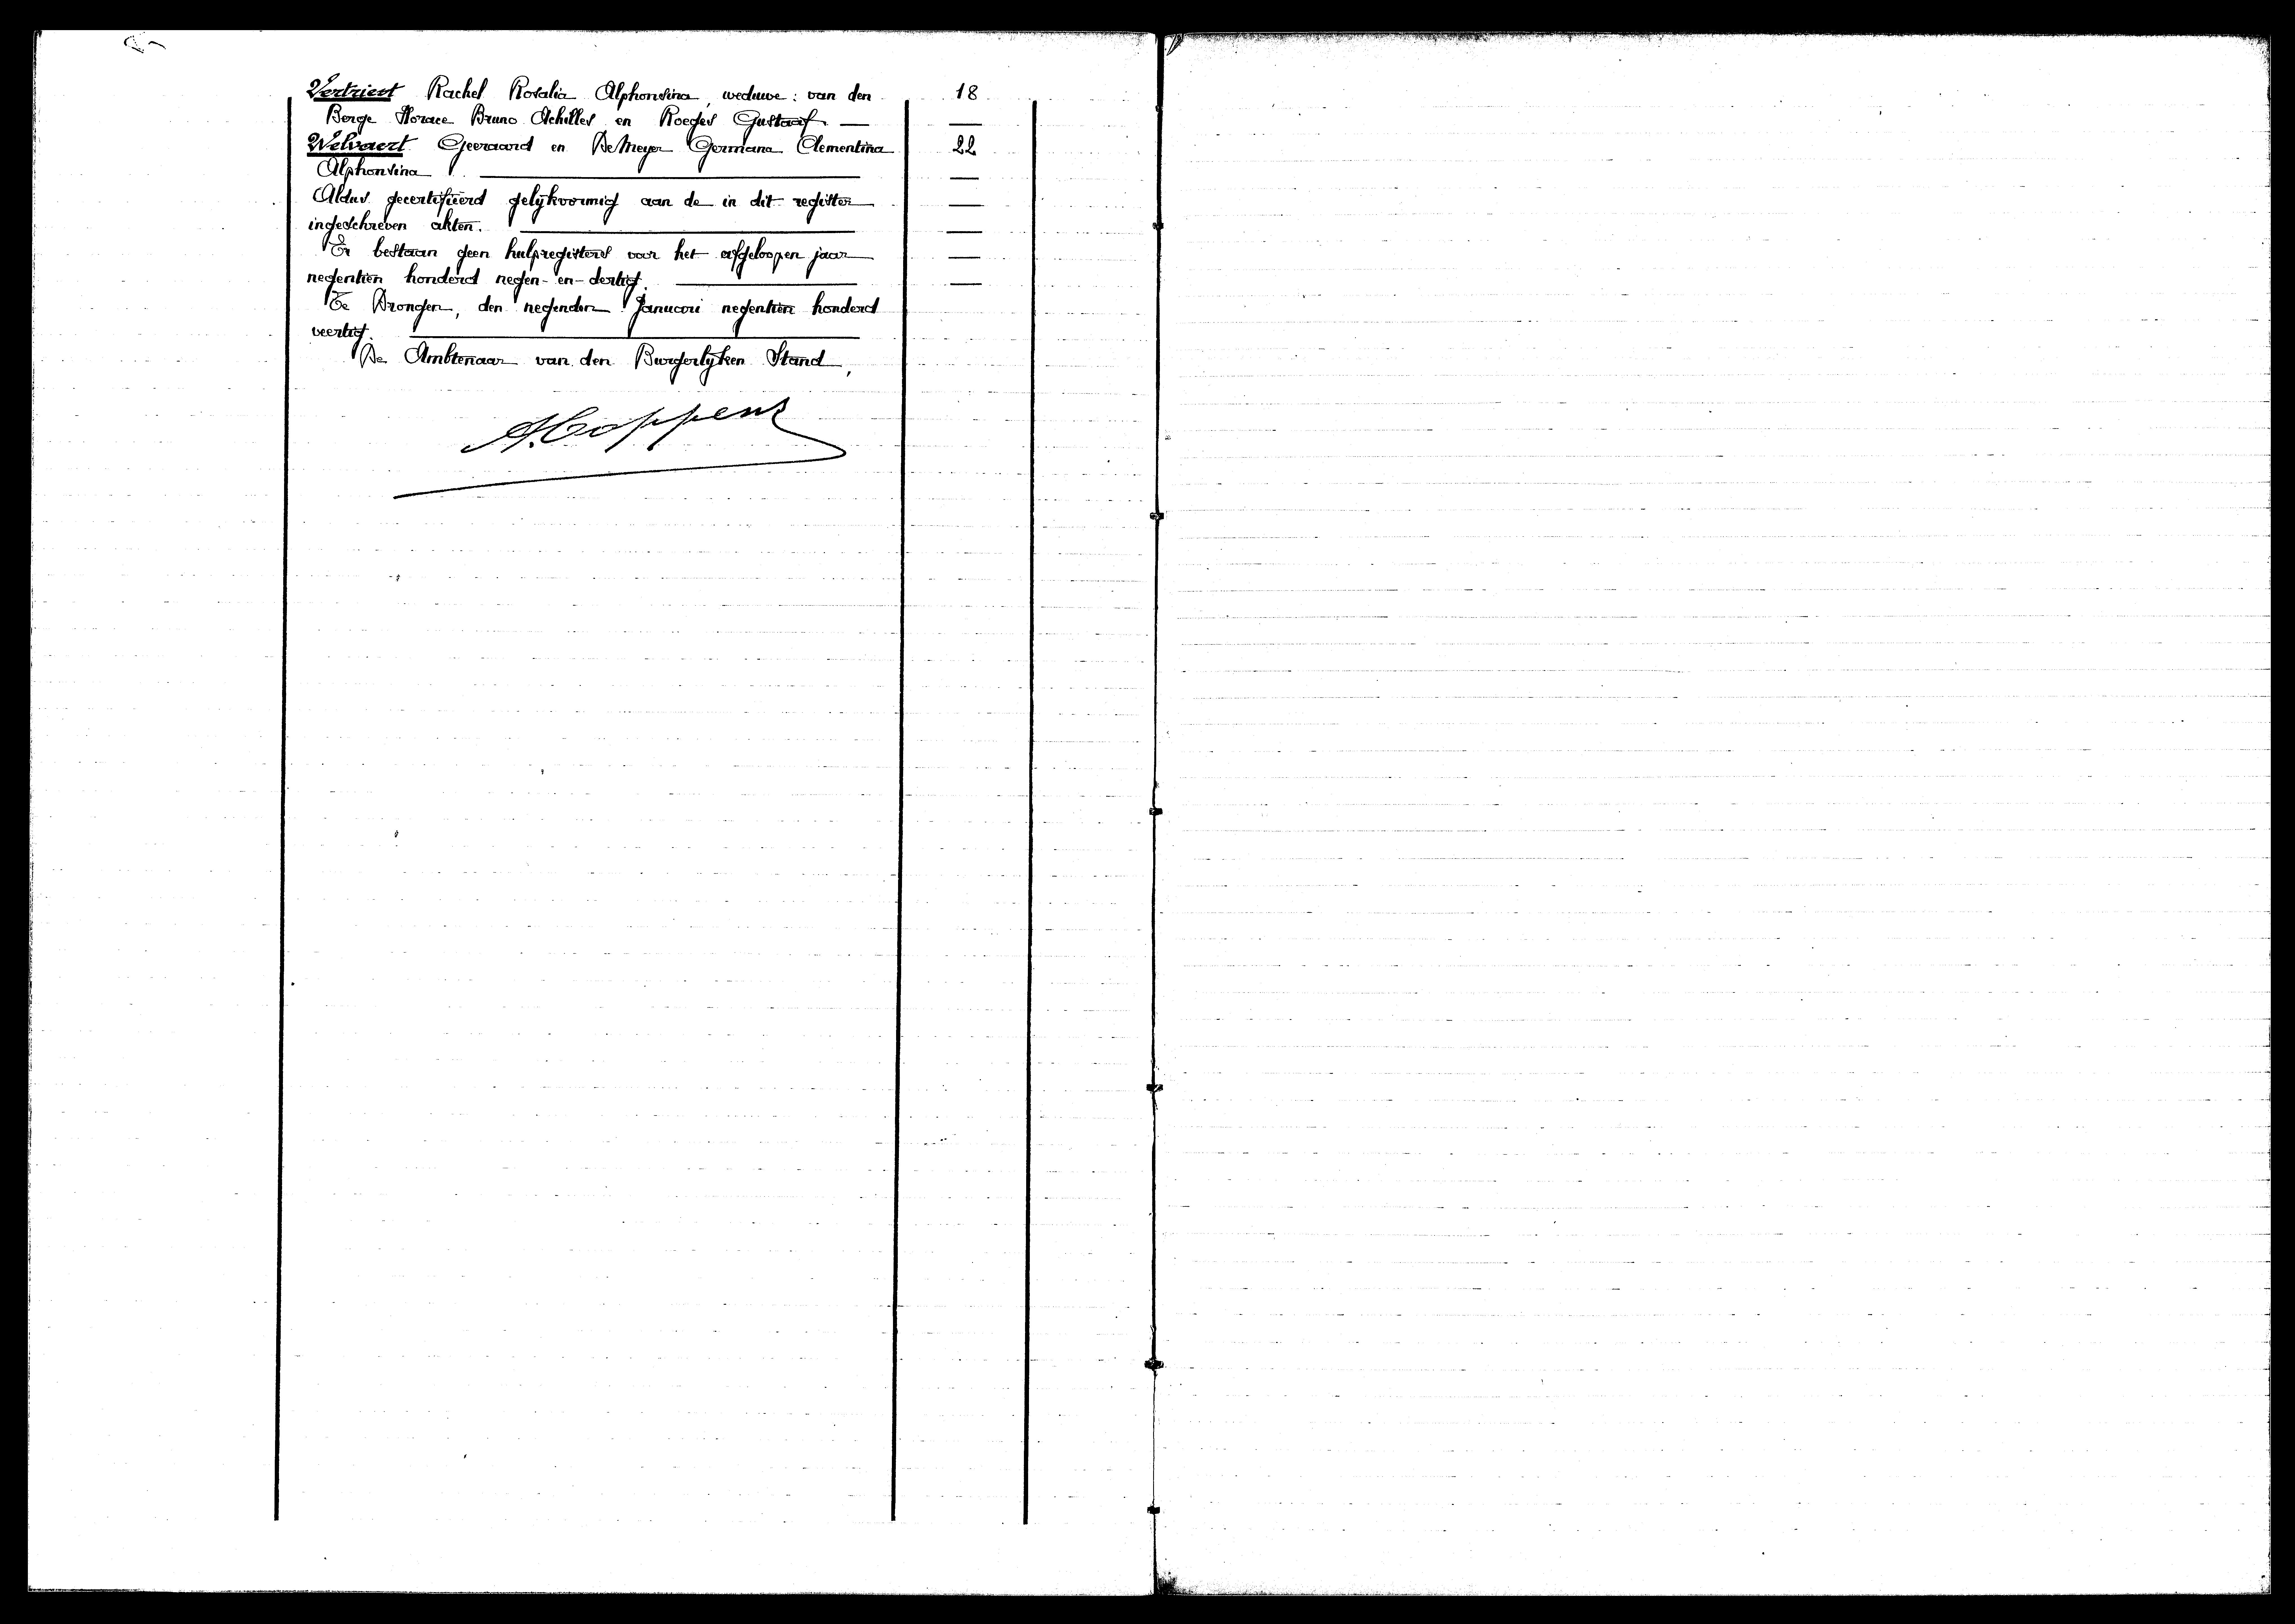 Vertriest Rachel Rosalia Alphonsina, weduwe: van den 18
Berge Horace Bruno Achilles en Roeges Gustaaf — —
Welvaert Geeraard en De Meyer Germana Clementina 22
Alphonsina. — —
Aldus gecertifieerd gelijkvormig aan de in dit register —
ingeschreven akten. — —
Er bestaan geen hulpregisters voor het afgeloopen jaar —
negentien honderd negen-en-dertig. — —
Te Drongen, den negenden Januari negentien honderd
veertig. —
De Ambtenaar van den Burgerlijken Stand,
A. Coppens